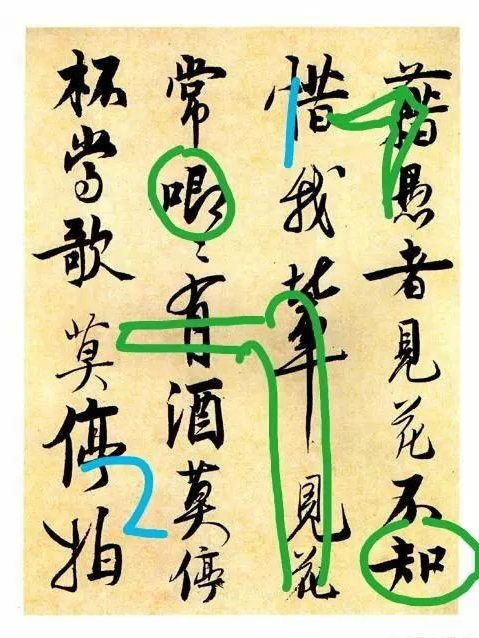 愚者見花不知
惜我輩見花
常唧〻有酒莫停
杯當歌莫停拍
1
2